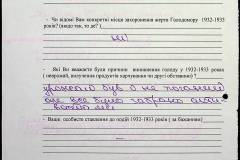 - Чи відомі Вам конкретні місця захоронення жертв Голодомору 1932-1933
років? (якщо так, то де? )
ні
- Які Ви вважаєте були причини виникнення голодомору у 1932-1933 роках
( неврожай, вилучення продуктів харчування чи другі обставини) ?
урожай був не поганий
але все було забрано
- Ваше особисте ставлення до подій 1932-1933 років ( за бажанням)